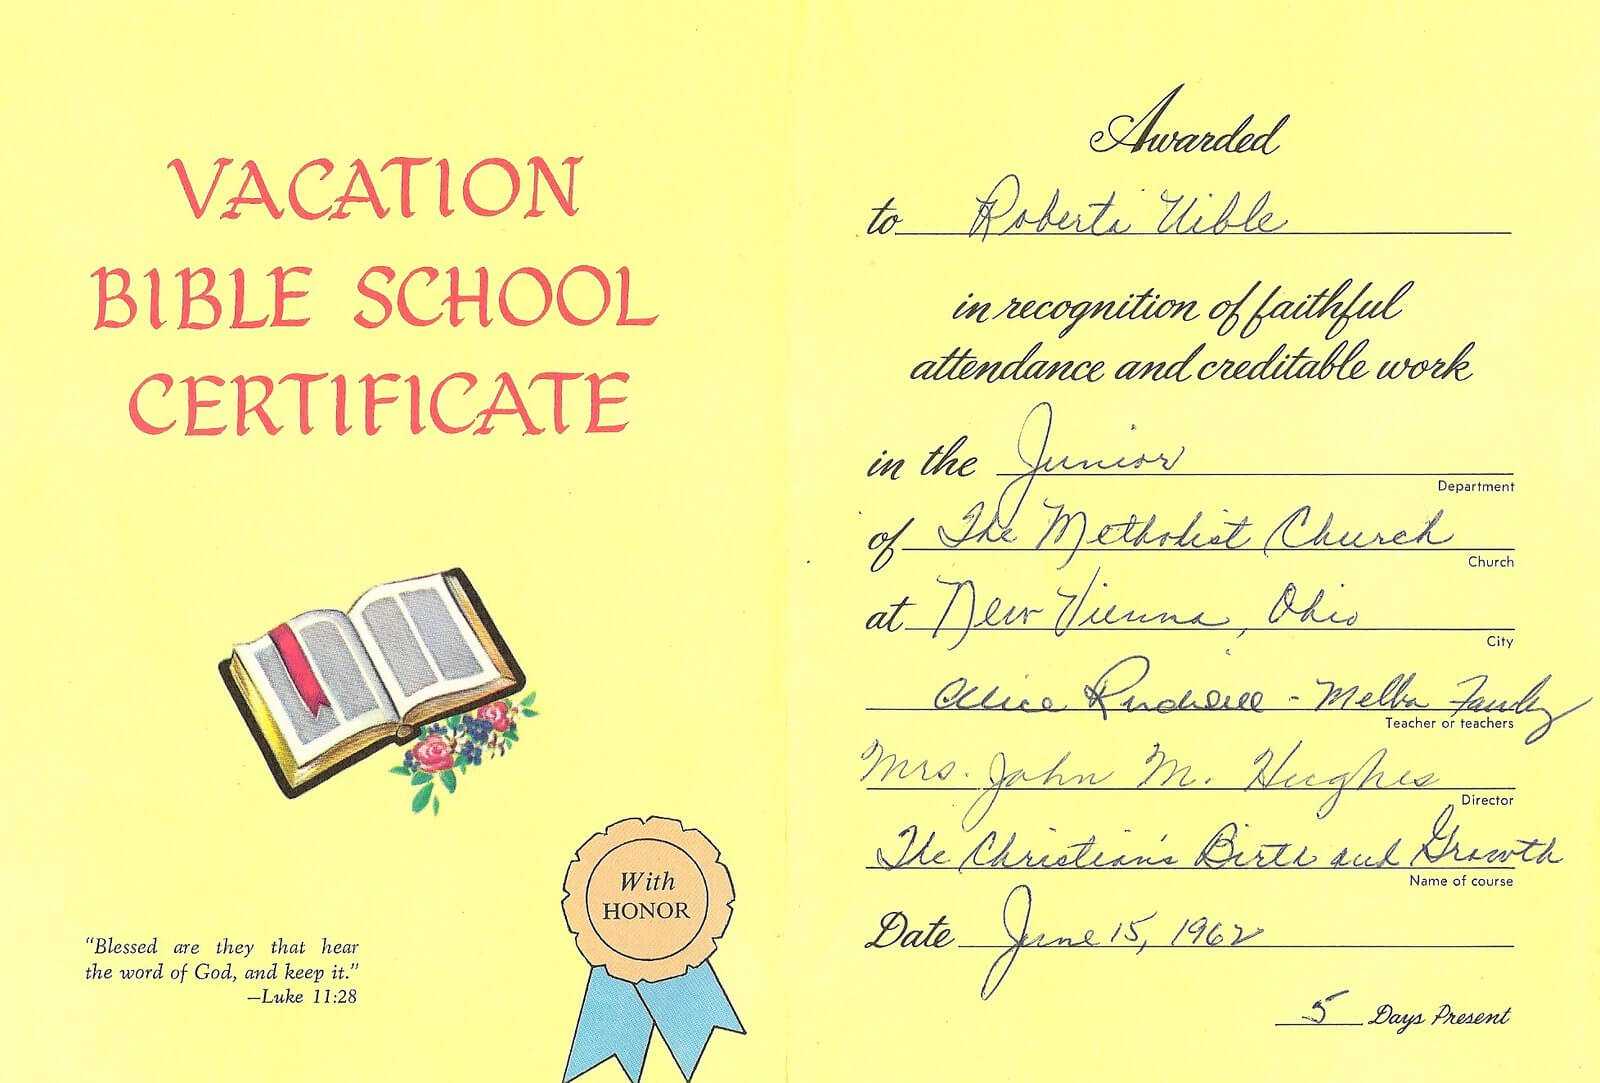 VACATION
BIBLE SCHOOL
CERTIFICATE
"Blessed are they that hear
the word of God, and keep it."
—Luke 11:28
With
HONOR
Awarded
to Roberta Uible
in recognition of faithful
attendance and creditable work
in the Junior
Department
of The Methodist Church
Church
at New Vienna, Ohio
City
Alice - Melba
Teacher or teachers
Mrs. John M. Hughes
Director
The Christian's Birth and Growth
Name of course
Date June 15, 1962
5 Days Present